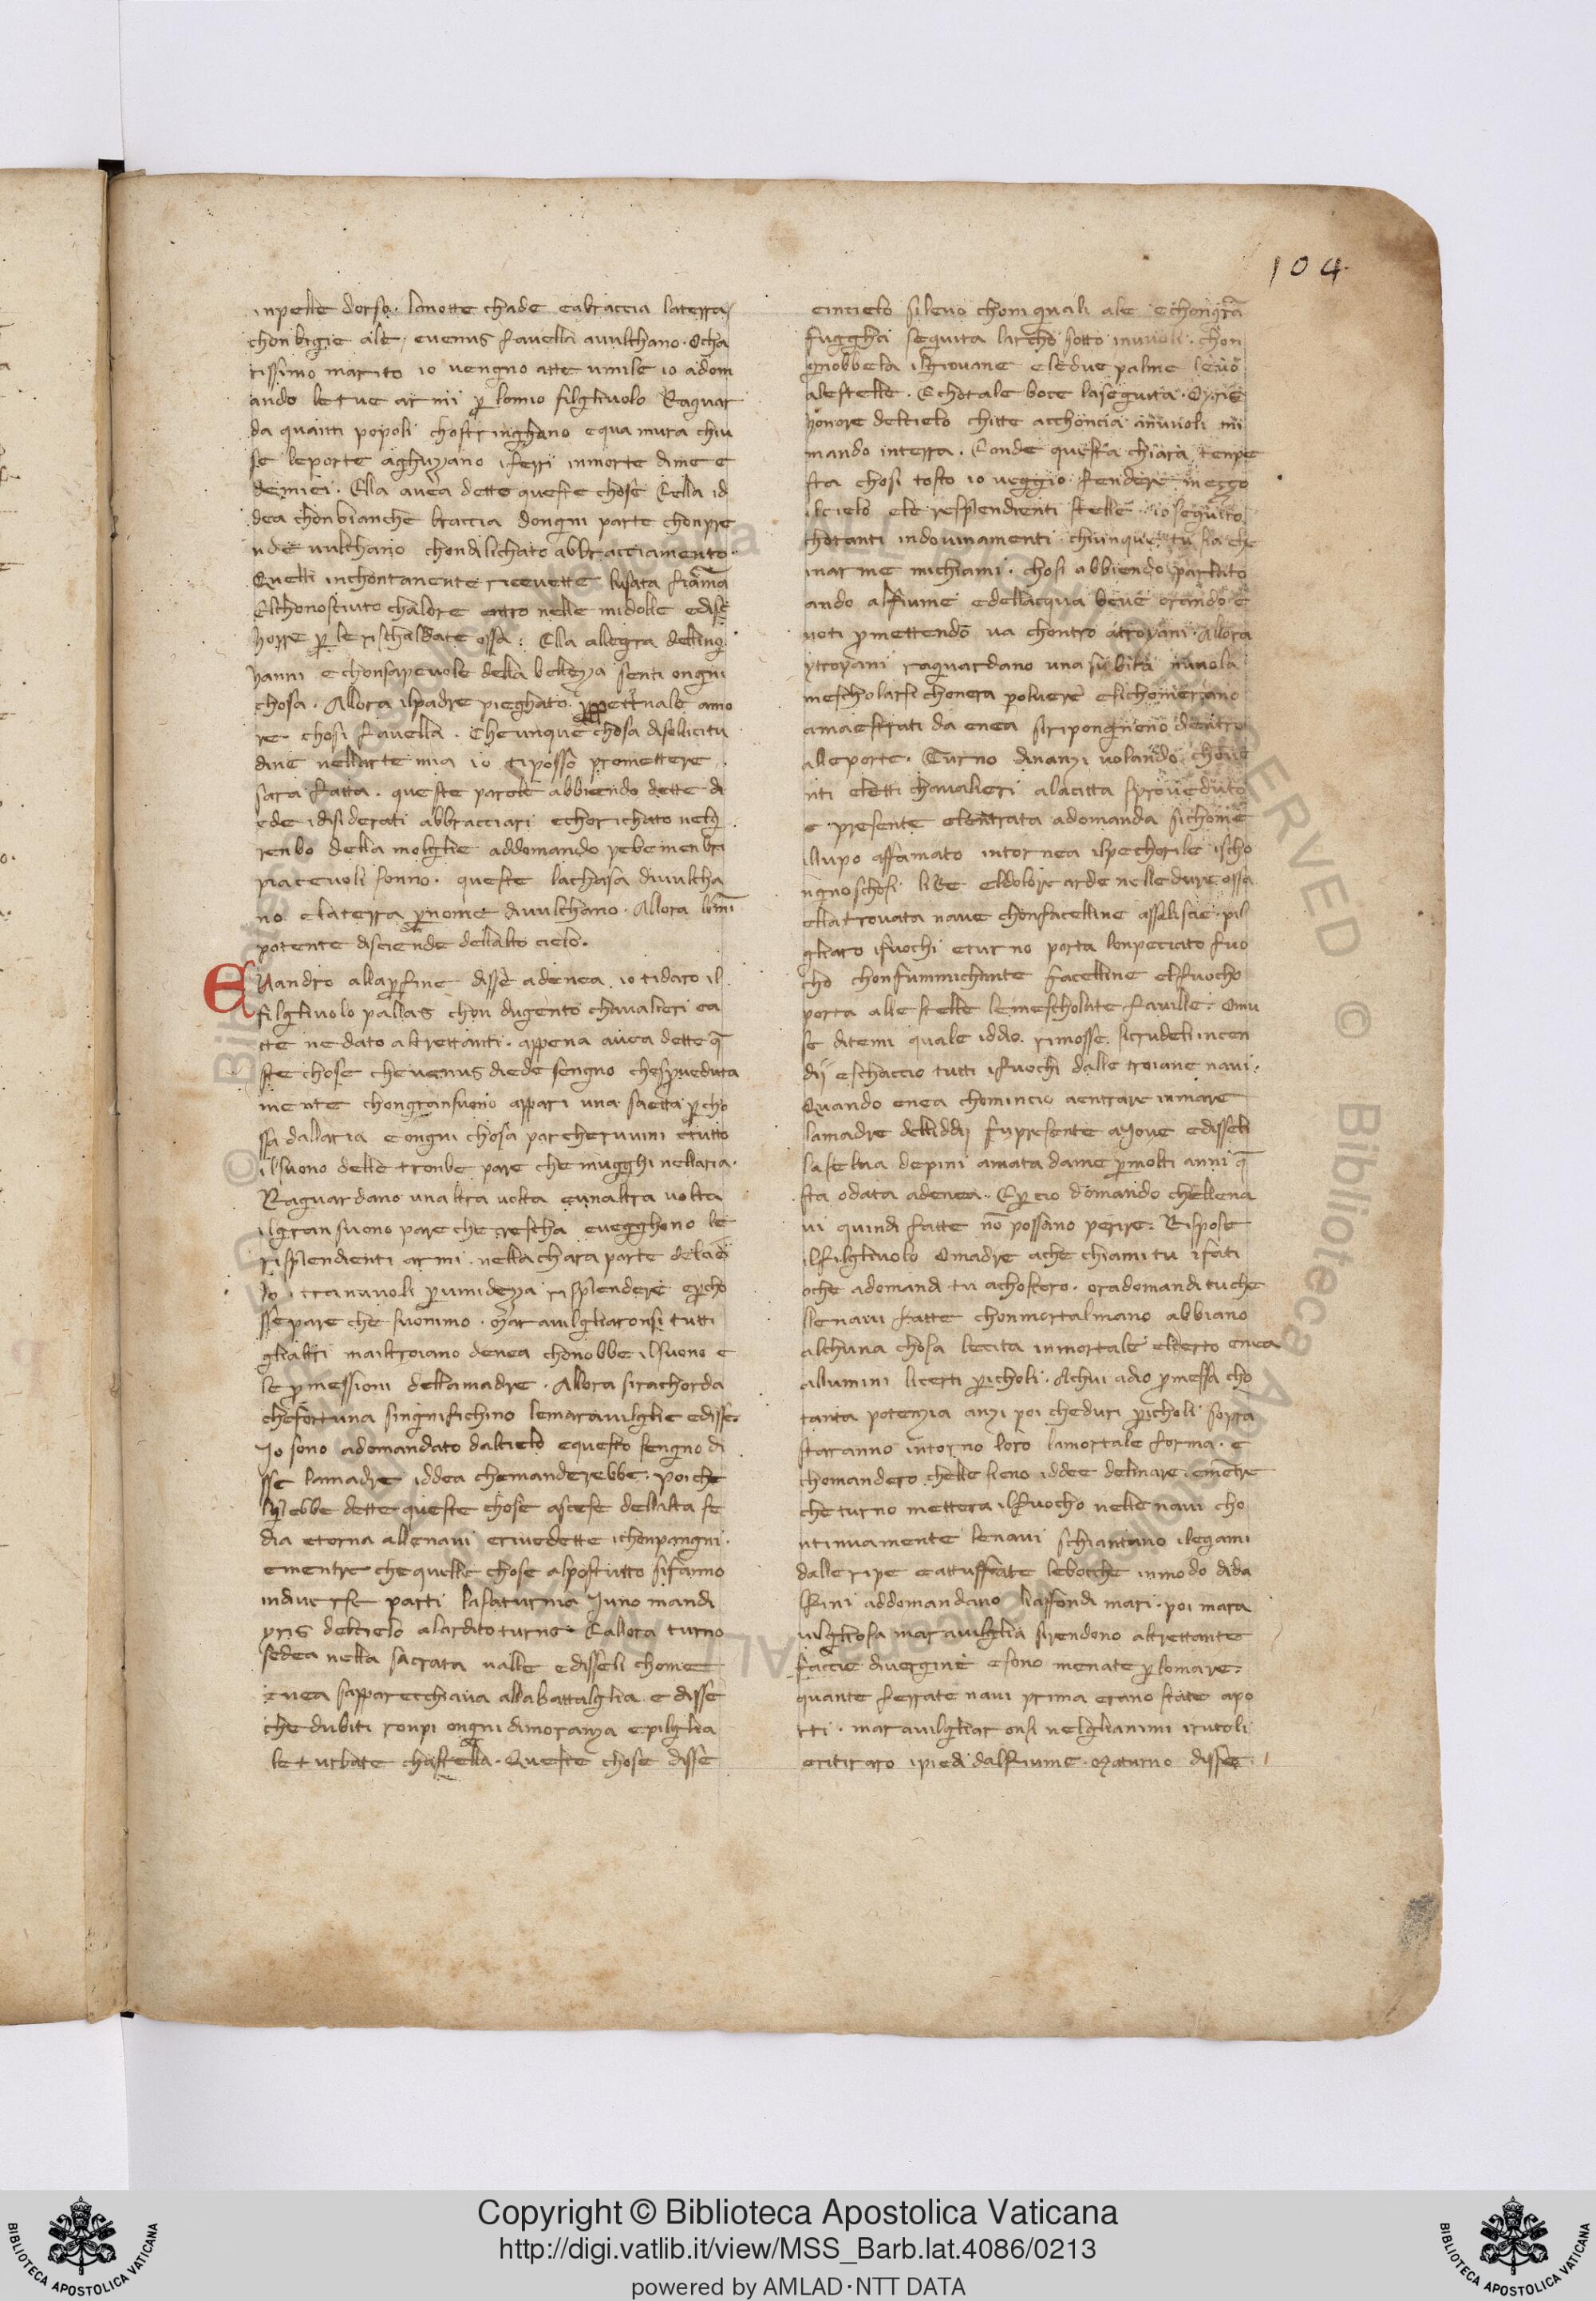 104
inpelle dorso. lanotte chade eabraccia laterra
chonbigie ale, evenus favella avulchano. Ocha
rissimo marito io vengno atte umile io adom
ando letue armi p lomio filgliuolo Raguar
da quanti popoli chostringhono equa mura chiu
se leporte aghuzano iferri inmorte dime e
demiei. Ella avea dette queste chose Cella id
dea chonbianche braccia dongni parte chonpre
nde vulchano chondilichato abbracciamento.
Quelli inchontanente ricevette lusata fiama
Elchonosciuto chalore entro nelle midolle edisc
horre p le rischaldate ossa: Ella allegra delling
hanni echonsapevole della belleza senti ongni
chosa. Allora ilpadre pieghato ppettuale amo
re chosi favella. Cheunque chosa disollicitu
dine nellarte mia io tiposso promettere
sara fatta. queste parole abbiendo dette di
ede idisiderati abbracciari echorichato nelg
renbo della molglie addomando pebemenbri
piacevoli sonno. queste lachasa divulcha
no elaterra pnome divulchano. Allora lomi
potente disciende dellalto cielo.
EVandro allapfine disse adenea. io tidaro il
filgliuolo pallas chon dugento chavalieri ea
tte ne dato altrettanti. appena avea dette q
ste chose chevenus diede sengno chesproveduta
mente chongransuono appari una saetta pcho
ssa dallaria eongni chosa parcheruvini etutto
ilsuono delle tronbe pare che mugghi nellaria.
Raguardano unaltra volta eunaltra volta
ilgransuono pare che crescha eveggono le
risplendienti armi. nella chara parte delcie
lo i tranuvoli pumideza risplendere epcho
sse pare che suonino. Maravilgliaronsi tutti
glialtri mailtroiano denea chonobbe ilsuono e
le pmessioni dellamadre. Allora sirachorda
chefortuna singnifichino lemaravilglie edisse.
Io sono adomandato dalcielo equesto sengno di
sse lamadre iddea chemanderebbe. poiche
lgliebbe dette queste chose ascese dellalta se
dia eterna allenavi erivedette ichonpangni.
ementre chequelle chose alpostutto sifanno
indiverse parti lasaturnia Juno mandi
yris delcielo alardito turno. Eallora turno
sedea nella sacrata valle edisseli chome
enea sapparecchiava allabattalglia. e disse
che dubiti ronpi ongni dimoranza epilglia
le turbate chastella. Queste chose disse
eincielo silevo chom quali ale echongra
fuggha seguita larcho sotto inuvoli. chon
gnobbela ilgiovane eledue palme levo
alestelle. Echotale boce laseguita. O yris
honore delcielo chitte acchoncia anuvoli mi
mando interra. Eonde questa chiara tenpe
sta chosi tosto io veggio fendere inmezzo
ilcielo ele resplendienti stelle. io seguiro
chotanti indovinamenti. chiunque tu sia che
inarme michiami. chosi abbiendo parlato
ando alfiume edellacqua beve orando e
voti pmettendo va chontro atroyani. Allora
ytroyani raguardano una subita nuvola
mescholarsi chonera polvere esichomerzano
amaestrati da enea siripongneno dentro
alleporte. Turno dinanzi volando chove
nti eletti chavalieri alacitta sproveduto
e presente elentrata adomanda sichome
illupo affamato intornea ilpechorile ischo
ngnoschosi lire eldolore arde nelledure ossa
ellatrovata nave chonfacelline assaliscie. pil
gliaro ifuochi eturno porta lonpeciato fuo
cho chonfummichante facelline elfuocho
porta alle stelle lemescholate faville: Omu
se ditemi quale iddio. rimosse. sicrudeli incen
dij eschaccio tutti ifuochi dalle troiane navi.
Quando enea chomincio aentrare inmare
lamadre dellidij fupresente aJove edisseli
laselva depini amata dame pmolti anni q
sta odata adenea. Epcio domando chellena
vi quindi fatte no possano perire: Rispose
ilfilgliuolo Omadre ache chiami tu ifati
oche adomandi tu achostoro. oradomandi tuche
llenavi fatte chonmortalmano abbiano
alchuna chosa lecita inmortale elcerto enea
allumini licerti pericholi. Achui adio pmessa cho
tanta potenzia anzi poi cheduri pericholi sopra
staranno intorno loro lamortale forma. e
chomandero chelle sieno iddee delmare. ementre
che turno mettera ilfuocho nelle navi cho
ntinuamente lenavi schiantano ilegami
dalle ripe eattuffate lebocche inmodo dida
lfini addomandano liaffondi mari. poi mara
vilgliosa maravilglia sirendono altrettante
faccie divergine esono menate plomare:
quante ferrate navi prima erano state apo
rti. maravilgliaronsi nelglianimi irutoli
eritiraro ipiedi dalfiume. Maturno disse.
Copyright © Biblioteca Apostolica Vaticana
http://digi.vatlib.it/view/MSS_Barb.lat.4086/0213
powered by AMLAD·NTT DATA
BIBLIOTECA APOSTOLICA VATICANA
BIBLIOTECA APOSTOLICA VATICANA